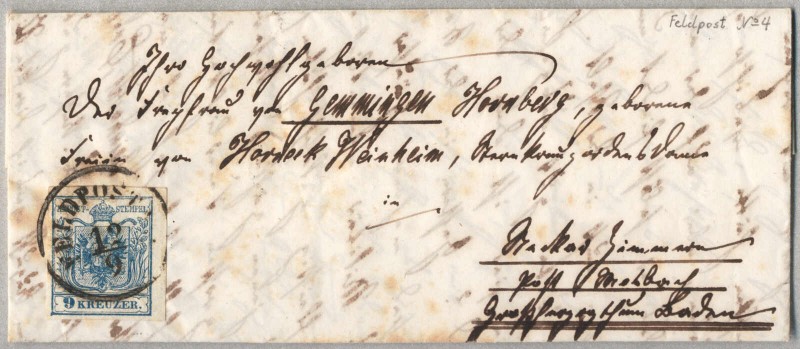 Feldpost No 4
Ihro Hochwohlgeboren
Der Freyfrau von Gemmingen Hornberg, geborene
Freiin von Horneck Weinheim, Sternkreuzordensdame
in
Neckar Zimmern
Post Mosbach
Großherzogthum Baden
FELDPOST
STEMPEL
12
9
9 KREUZER.